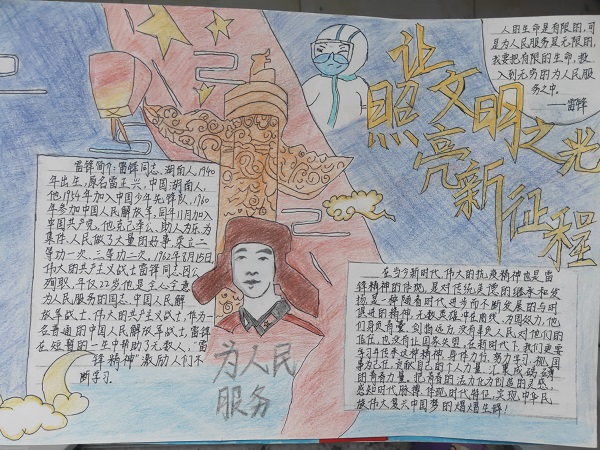 让文明之光
照亮新征程
人的生命是有限的,可
是为人民服务是无限的,
我要把有限的生命,投
入到无穷的为人民服
务之中。
——雷锋
雷锋简介:雷锋同志,湖南人,1940
年出生,原名雷正兴,中国湖南人,
他1954年加入中国少年先锋队,1960
年参加中国人民解放军,同年11月加入
中国共产党。他克己奉公、助人为乐,为
集体、人民做了大量的好事,荣立二
等功一次、三等功二次。1962年8月15日
伟大的共产主义战士雷锋同志因公
殉职,年仅22岁。他是全心全意
为人民服务的同志,中国人民解
放军战士,伟大的共产主义战士,作为一
名普通的中国人民解放军战士,雷锋
在短暂的一生中帮助了无数人,“雷
锋精神”激励人们不
断学习。
为人民
服务
在当今新时代,伟大的抗疫精神也是雷
锋精神的体现,是对传统美德的继承和发
扬,是一种随着时代进步而不断发展的与时
俱进的精神,无数英雄冲在前线,为国效力,他
们身负重量,剑指远方,没有辜负人民对他们的
信任,也没有让国家失望。在新时代下,我们更要
学习并传承这种精神,身体力行,努力学习,视
事为己任,贡献自己的个人力量,汇聚成
时代脉搏,体现时代特征,实现中华民
族伟大复兴中国梦的